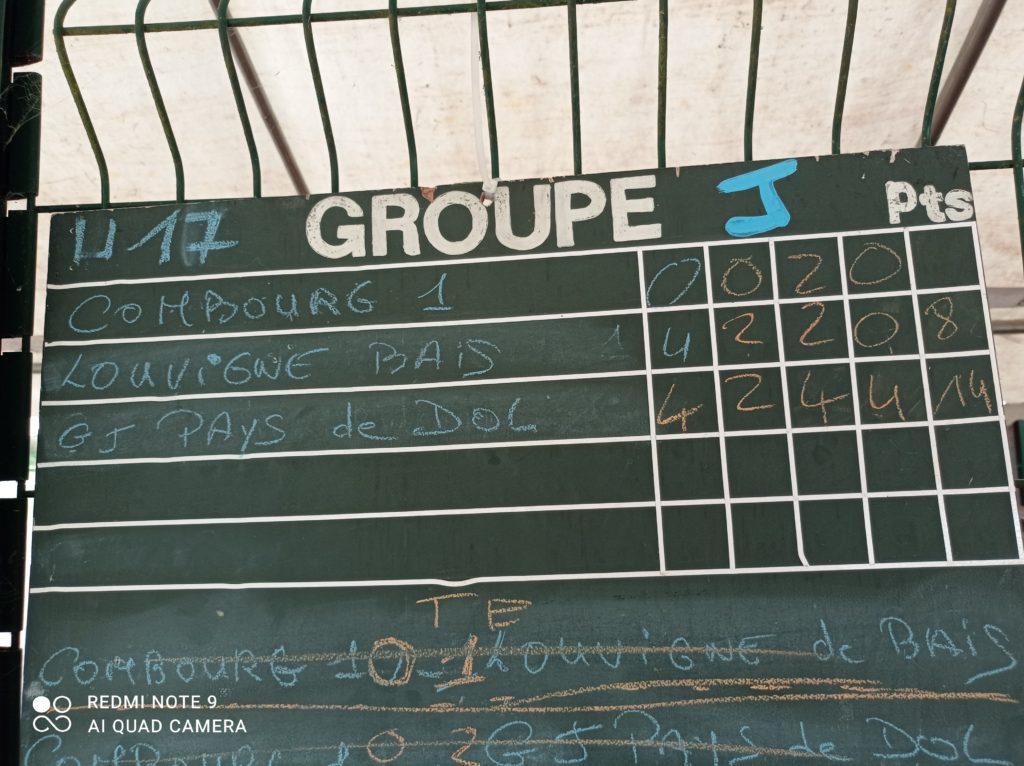 U17 GROUPE J Pts
COMBOURG 1 0 0 2 0
LOUVIGNE BAIS 1 4 2 2 0 8
GJ PAYS de DOL 4 2 4 4 14
TE
COMBOURG 1 0 - 1 LOUVIGNE de BAIS
COMBOURG 1 0 2 GJ PAYS de DOL
REDMI NOTE 9
AI QUAD CAMERA